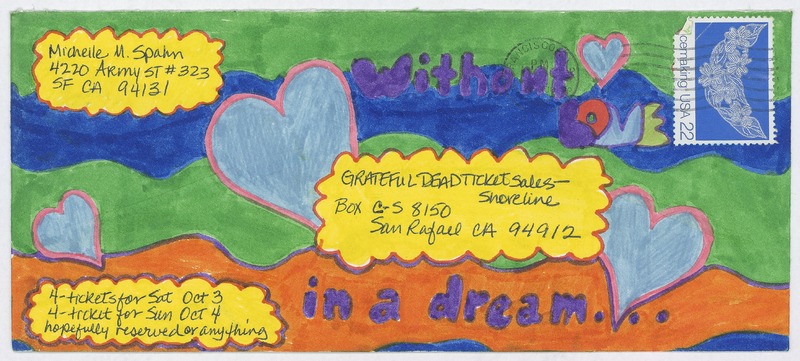 Michelle M. Spahn
4220 Army ST #323
SF CA 94131
Without
LOVE
cemaking USA 22
GRATEFUL DEAD Ticket Sales—
Shoreline
Box C-S 8150
San Rafael CA 94912
4-tickets for Sat Oct 3
4-ticket for Sun Oct 4
hopefully reserved or anything
in a dream....